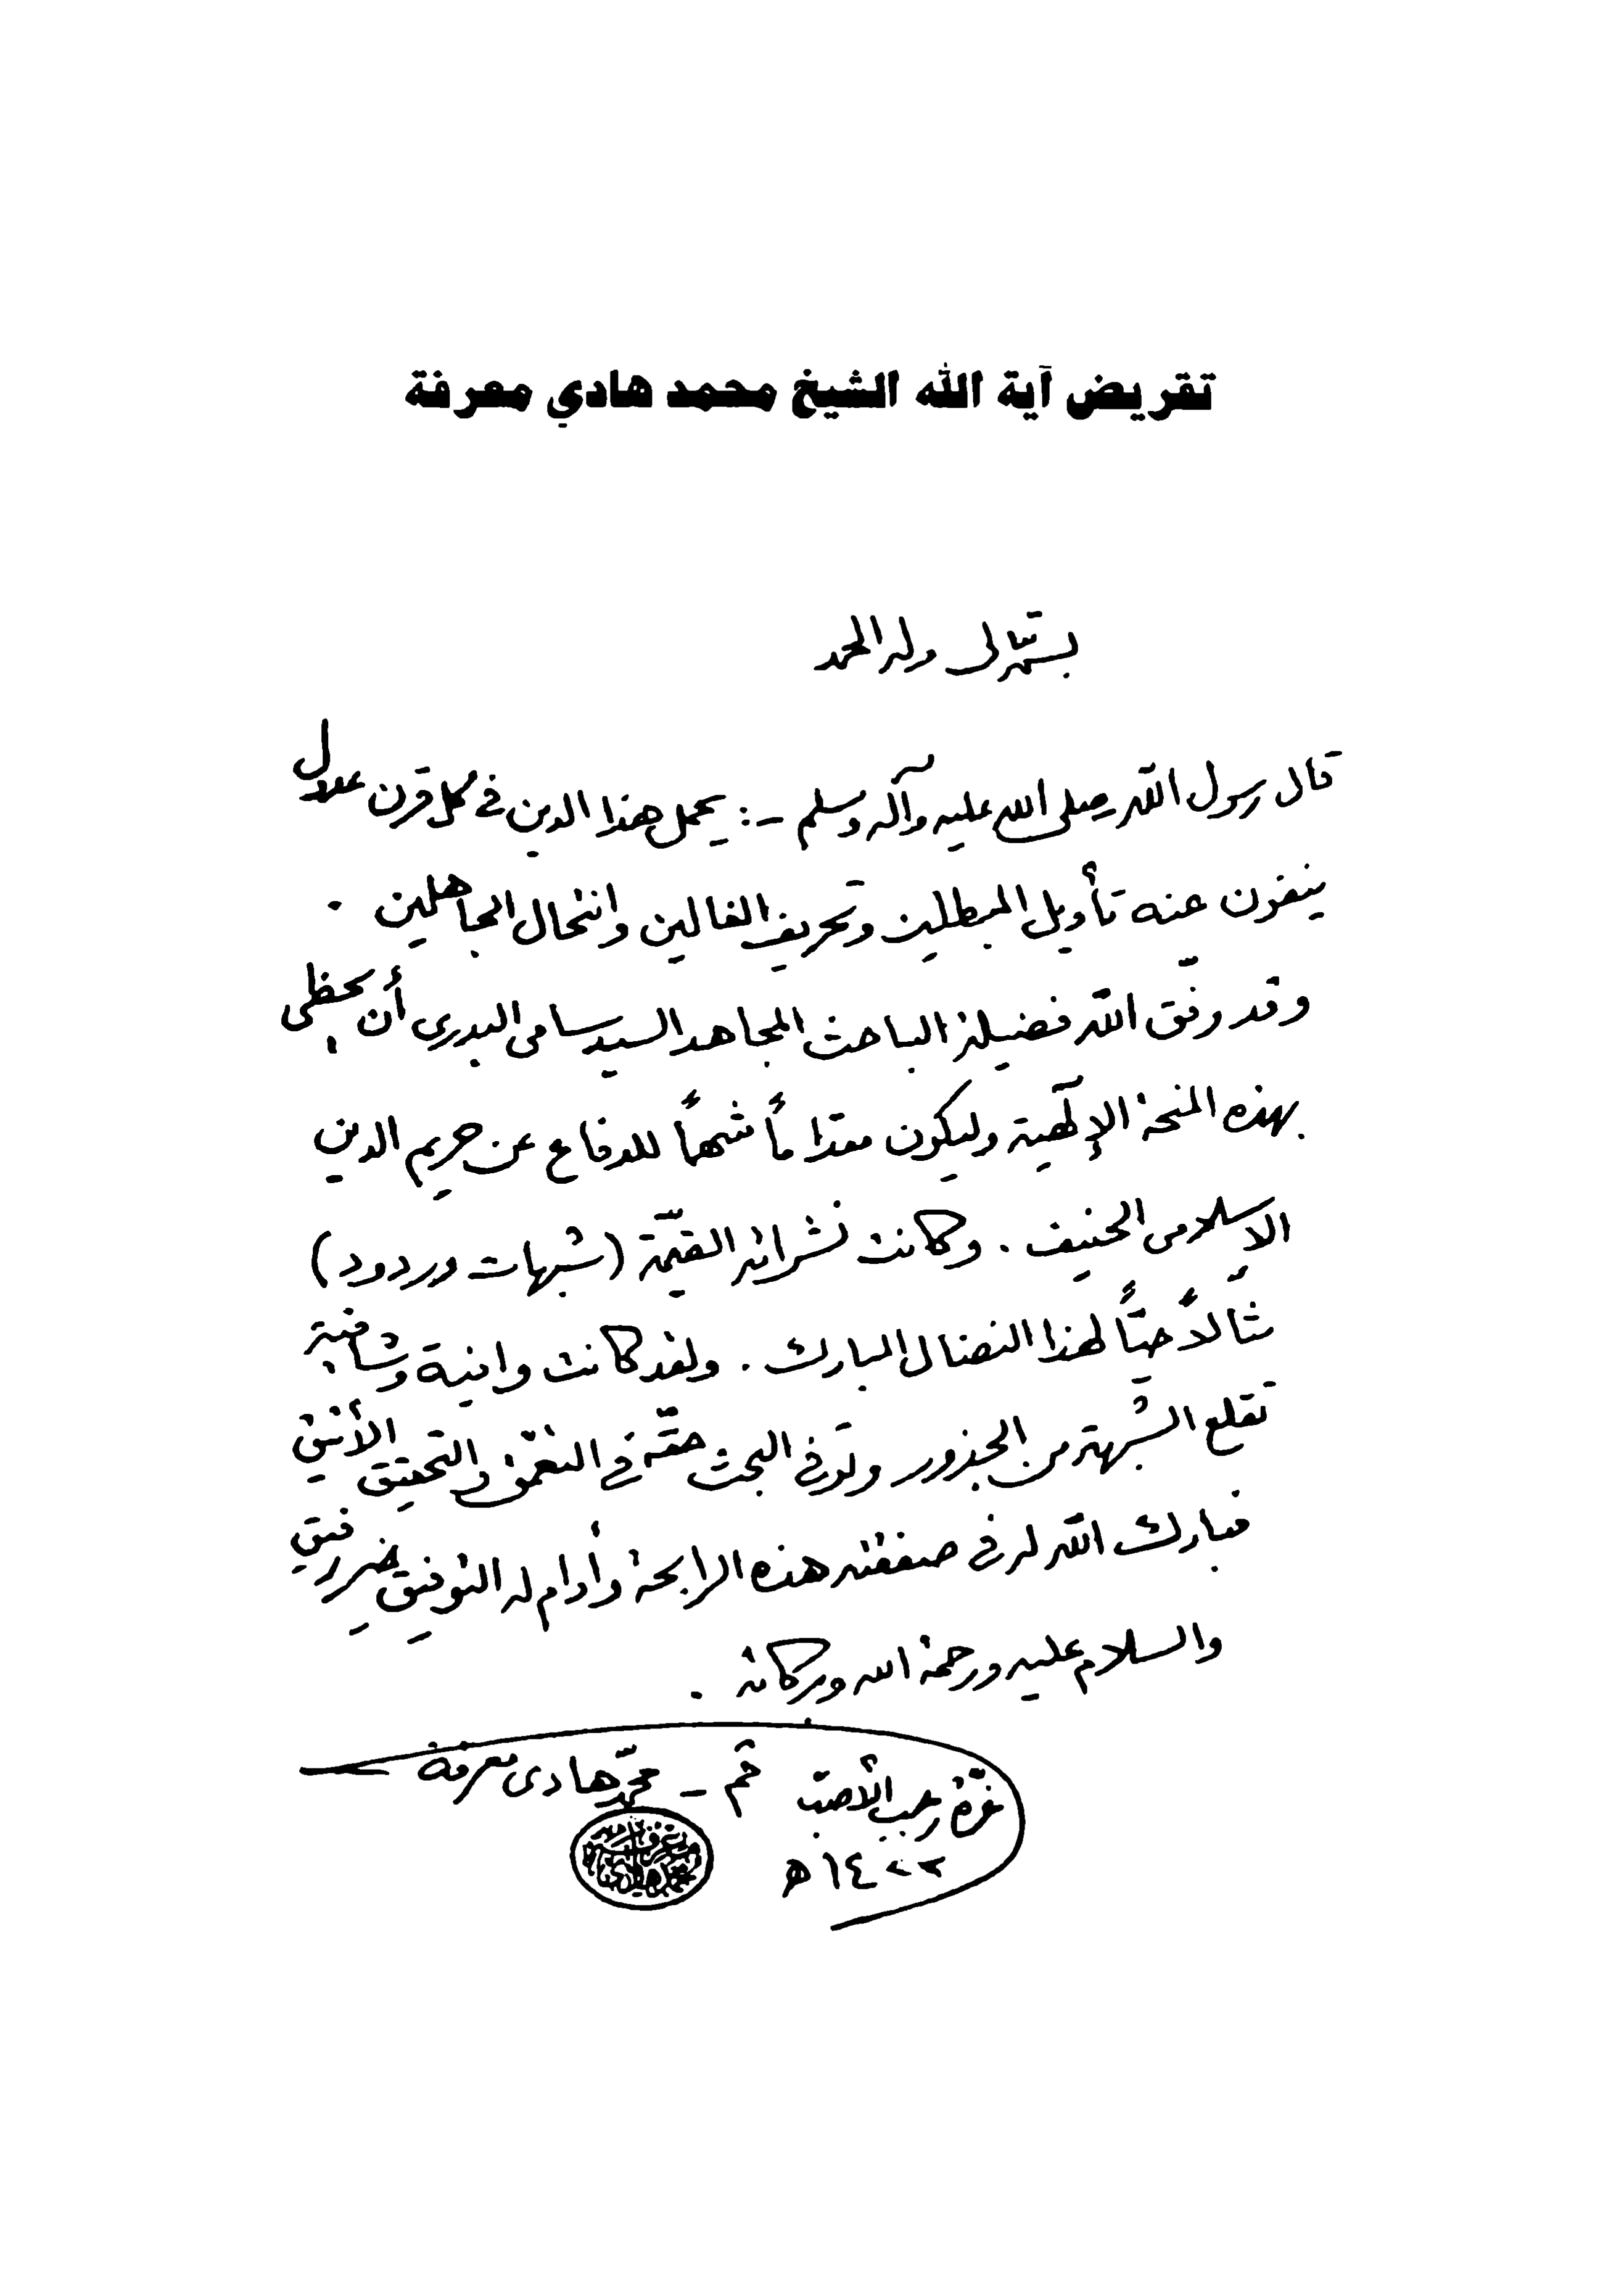 تقريض آية الله الشيخ محمد هادي معرفة
بسمه تعالى وله الحمد
قال رسول الله صلى الله عليه وآله وسلم -: يحمل هذا الدين في كل قرن عدول
ينفون عنه تأويل المبطلين وتحريف الغالين وانتحال الجاهلين .
وقد وفّق الله فضيلة الباحث المجاهد السيد سامى البدرى أن يحظى
بهذه المنحة الإلهية وليكون مقداماً شهماً للدفاع عن حريم الدين
الاسلامى الحنيف . وكانت نشراته القيّمة (شبهات وردود)
مثالاً حيّاً لهذا النضال المبارك . ولقد كانت وافية وشافية
تقلع الشبهة من الجذور وتوفى البحث حقّه في التعمّق والتحقيق الأنيق
فبارك الله له في صفقته هذه الرابحة وأدام له التوفيق خير رفيق
والسلام عليه ورحمة الله وبركاته .
قم - محمّد هادى معرفة
غرّة رجب الأصبّ
١٤٢٢ ه